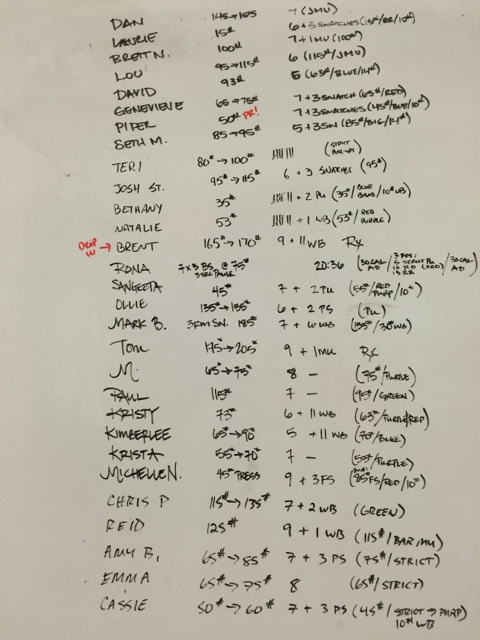 DAN 145→185 7 (JMU)
LAURIE 15# 6+3 SNATCHES (15#/RR/10#)
BRETT N. 100# 7+1MU (100#)
LOU 95→115# 6 (115#/JMU)
DAVID 93# 5 (63#/BLUE/14#)
GENEVIEVE 65→75# 7+3 SNATCH (65#/RED)
PIPER 50# PR! 7+3 SNATCHES (45#/BLUE/10#)
SETH M. 85→95# 5+3SN (85#/BIG/14#)
TERI 80#→100# (STRICT PULL-UPS)
JOSH ST. 95#→115# 6 + 3 SNATCHES (95#)
BETHANY 35# + 2 PU (35#/BLUE BAND/10#WB)
NATALIE 53# + 1 WB (53#/RED PURPLE)
DROP IN → BRENT 165#→170# 9 + 11 WB Rx
RONA 7x3 BS @ 75# 3 SEC PAUSE 20:36 (30CAL AD / 3 RDS: 5 STRICT PU 10 RD (RED) 15 RR / 30CAL AD)
SANGEETA 45# 7 + 2PU (55#/RED PURP/10#)
OLLIE 135#→155# 6 + 2 PS (PU)
MARK B. 3RM SN. 185# 7 + 6 WB (135#/30#WB)
TOM 175#→205# 9 + 1MU Rx
M. 65#→75# 8 — (75#/PURPLE)
PAUL 115# 7 — (95#/GREEN)
KRISTY 73# 6 + 11 WB (63#/PURPLE/RED)
KIMBERLEE 65#→90# 5 + 11 WB (70#/BLUE)
KRISTA 55→70# 7 — (55#/PURPLE)
MICHELLE N. 45# PRESS 9 + 3FS (85#FS/RED/10#)
CHRIS P 115#→135# 7 + 2 WB (GREEN)
REID 125# 9 + 1 WB (115#/BAR/MU)
AMY B. 65#→85# 7 + 3 PS (75#/STRICT)
EMMA 65#→75# 8 (65#/STRICT)
CASSIE 50#→60# 7 + 3 PS (45#/STRICT→PURP 10# WB)